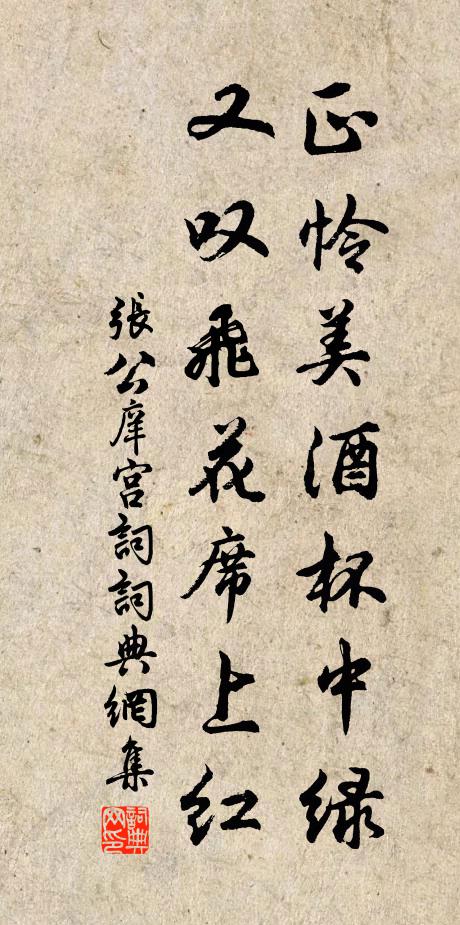 正怜美酒杯中绿
又叹飛花席上红
張公庠宫詞詞典網集
詞典网印